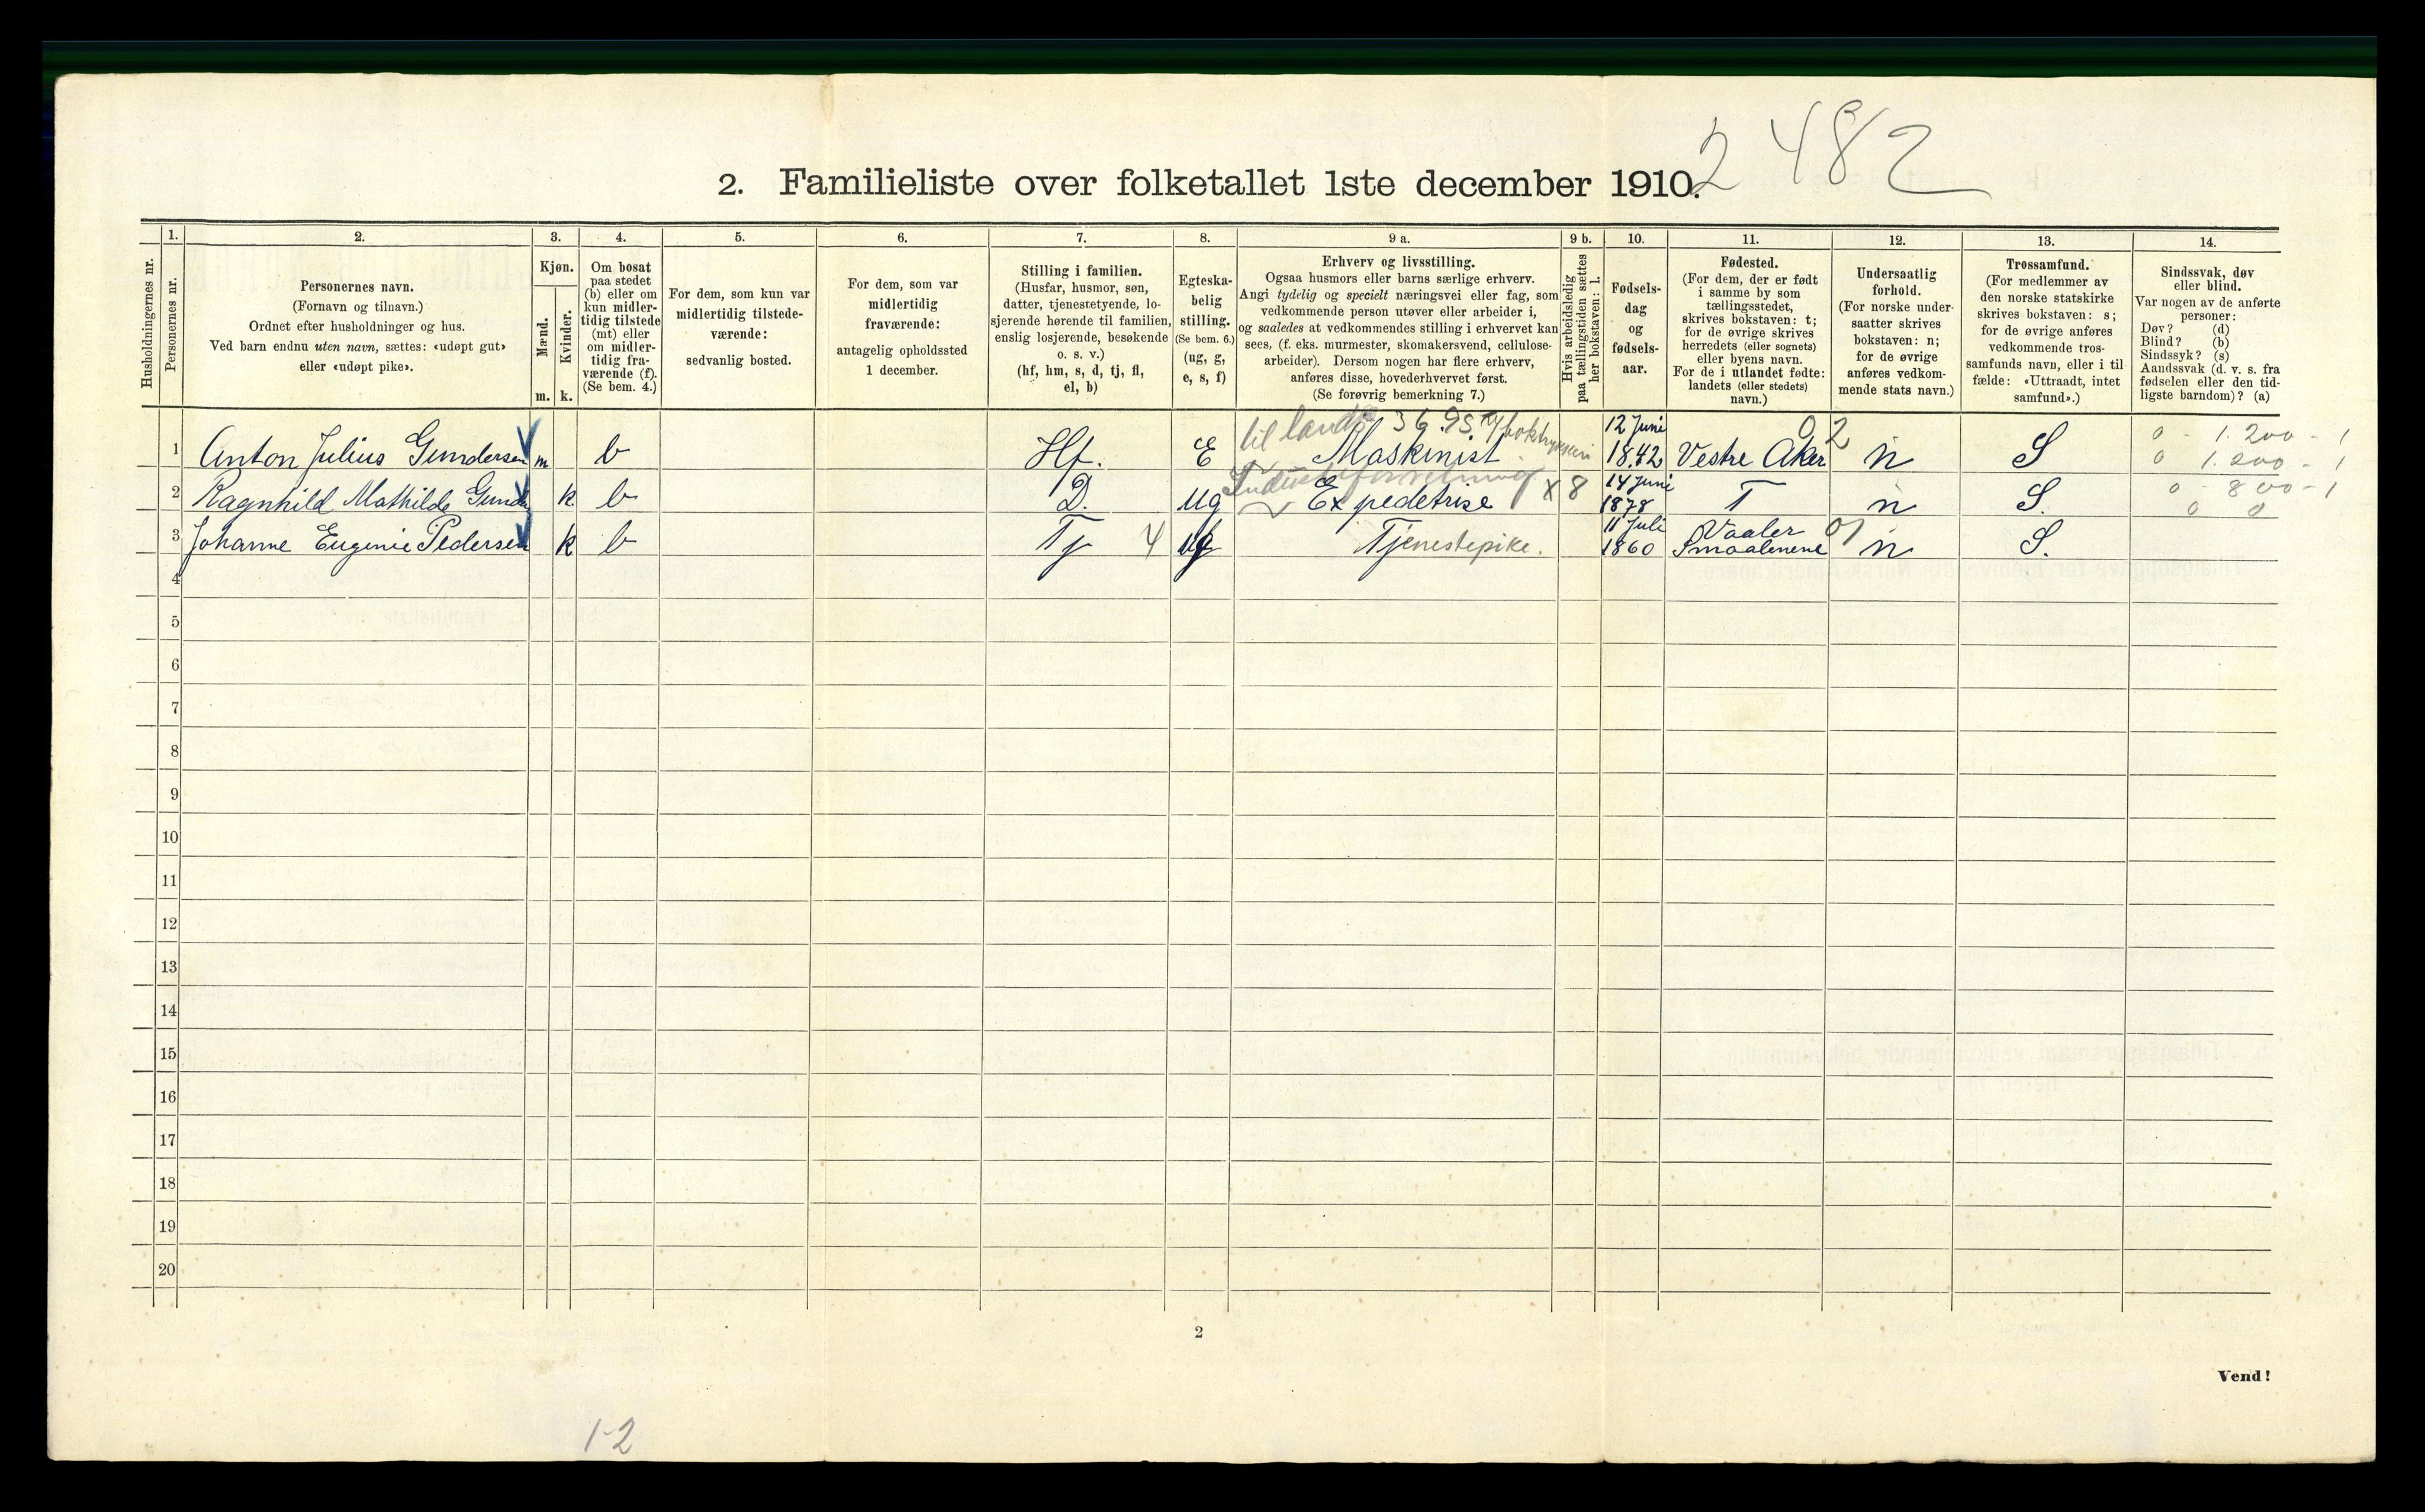 2 4 8 2
2. Familieliste over folketallet 1ste december 1910.
Husholdningernes nr.
1.
Personernes nr.
2.
Personernes navn.
(Fornavn og tilnavn.)
Ordnet efter husholdninger og hus.
Ved barn endnu uten navn, sættes: «udøpt gut»
eller «udøpt pike».
3.
Kjøn.
Mænd.
Kvinder.
m. k.
4.
Om bosat
paa stedet
(b) eller om
kun midler-
tidig tilstede
(mt) eller
om midler-
tidig fra-
værende (f).
(Se bem. 4.)
5.
For dem, som kun var
midlertidig tilstede-
værende:
sedvanlig bosted.
6.
For dem, som var
midlertidig
fraværende:
antagelig opholdssted
1 december.
7.
Stilling i familien.
(Husfar, husmor, søn,
datter, tjenestetyende, lo-
sjerende hørende til familien,
enslig losjerende, besøkende
o. s. v.)
(hf, hm, s, d, tj, fl,
el, b)
8.
Egteska-
belig
stilling.
(Se bem. 6.)
(ug, g,
e, s, f)
9 a.
Erhverv og livsstilling.
Ogsaa husmors eller barns særlige erhverv.
Angi tydelig og specielt næringsvei eller fag, som
vedkommende person utøver eller arbeider i,
og saaledes at vedkommendes stilling i erhvervet kan
sees, (f. eks. murmester, skomakersvend, cellulose-
arbeider). Dersom nogen har flere erhverv,
anføres disse, hovederhvervet først.
(Se forøvrig bemerkning 7.)
9 b.
Hvis arbeidsledig
paa tællingstiden sættes
her bokstaven: l.
10.
Fødsels-
dag
og
fødsels-
aar.
11.
Fødested.
(For dem, der er født
i samme by som
tællingsstedet,
skrives bokstaven: t;
for de øvrige skrives
herredets (eller sognets)
eller byens navn.
For de i utlandet fødte:
landets (eller stedets)
navn.)
12.
Undersaatlig
forhold.
(For norske under-
saatter skrives
bokstaven: n;
for de øvrige
anføres vedkom-
mende stats navn.)
13.
Trossamfund.
(For medlemmer av
den norske statskirke
skrives bokstaven: s;
for de øvrige anføres
vedkommende tros-
samfunds navn, eller i til
fælde: «Uttraadt, intet
samfund».)
14.
Sindssvak, døv
eller blind.
Var nogen av de anførte
personer:
Døv? (d)
Blind? (b)
Sindssyk? (s)
Aandssvak (d. v. s. fra
fødselen eller den tid-
ligste barndom)? (a)
til lands 36.95 12 Juni 0 2 0 - 1.200 - 1
1 Anton Julius Gundersen m b Hf. E Maskinist 1842 Vestre Aker n S 0 1.200 - 1
14 Juni 0 - 800 - 1
2 Ragnhild Mathilde Gunder k b D. ug Expedetrise x 8 1878 T n S. 0 0
11 Juli Vaaler 01
3 Johanne Eugenie Pedersen k b Tj 4 ug Tjenestepike. 1860 Smaalenene n S.
4
5
6
7
8
9
10
11
12
13
14
15
16
17
18
19
20
2
Vend!
1-2